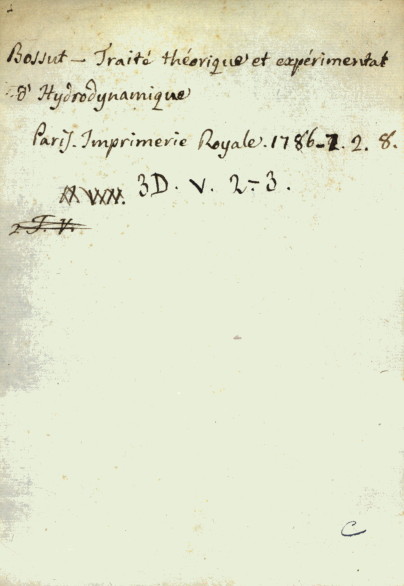 Bossut — Traité théorique et expérimental
d'Hydrodynamique
Paris. Imprimerie Royale. 1786-7. 2. 8.
3D. V. 2-3.
C